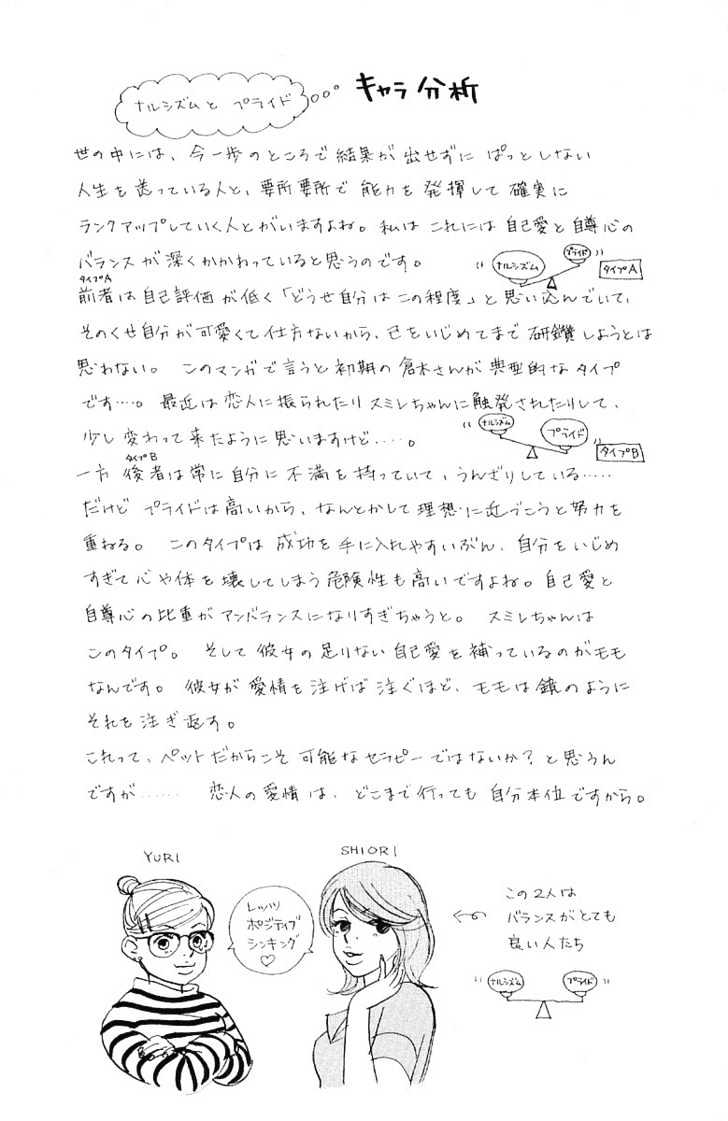 ナルシズムと プライド
キャラ分析
世の中には、今一歩のところで結果が出せずに ぱっとしない
人生を送っている人と、要所要所で能力を発揮して確実に
ランクアップしていく人とがいますよね。私は これには自己愛と自尊心の
バランスが深くかかわっていると思うのです。
ナルシズム
プライド
タイプA
タイプA
前者は自己評価が低く「どうせ自分はこの程度」と思い込んでいて、
そのくせ自分が可愛くて仕方ないから、己をいじめてまで研鑽しようとは
思わない。 このマンガで言うと初期の倉木さんが典型的なタイプ
です…。 最近は恋人に振られたりスミレちゃんに触発されたりして、
少し変わって来たように思いますけど……。
ナルシズム
プライド
タイプB
タイプB
一方 後者は常に自分に不満を持っていて、うんざりしている……
だけど プライドは高いから、なんとかして理想に近づこうと努力を
重ねる。 このタイプは成功を手に入れやすいぶん、自分をいじめ
すぎて心や体を壊してしまう危険性も高いですよね。自己愛と
自尊心の比重がアンバランスになりすぎちゃうと。 スミレちゃんは
このタイプ。 そして彼女の足りない自己愛を補っているのがモモ
なんです。 彼女が愛情を注げば注ぐほど、モモは鏡のように
それを注ぎ返す。
これって、ペットだからこそ可能なセラピーではないか?と思うん
ですが…… 恋人の愛情は、どこまで行っても自分本位ですから。
YURI
SHIORI
レッツ
ポジティブ
シンキング
♡
この2人は
バランスがとても
良い人たち
ナルシズム
プライド